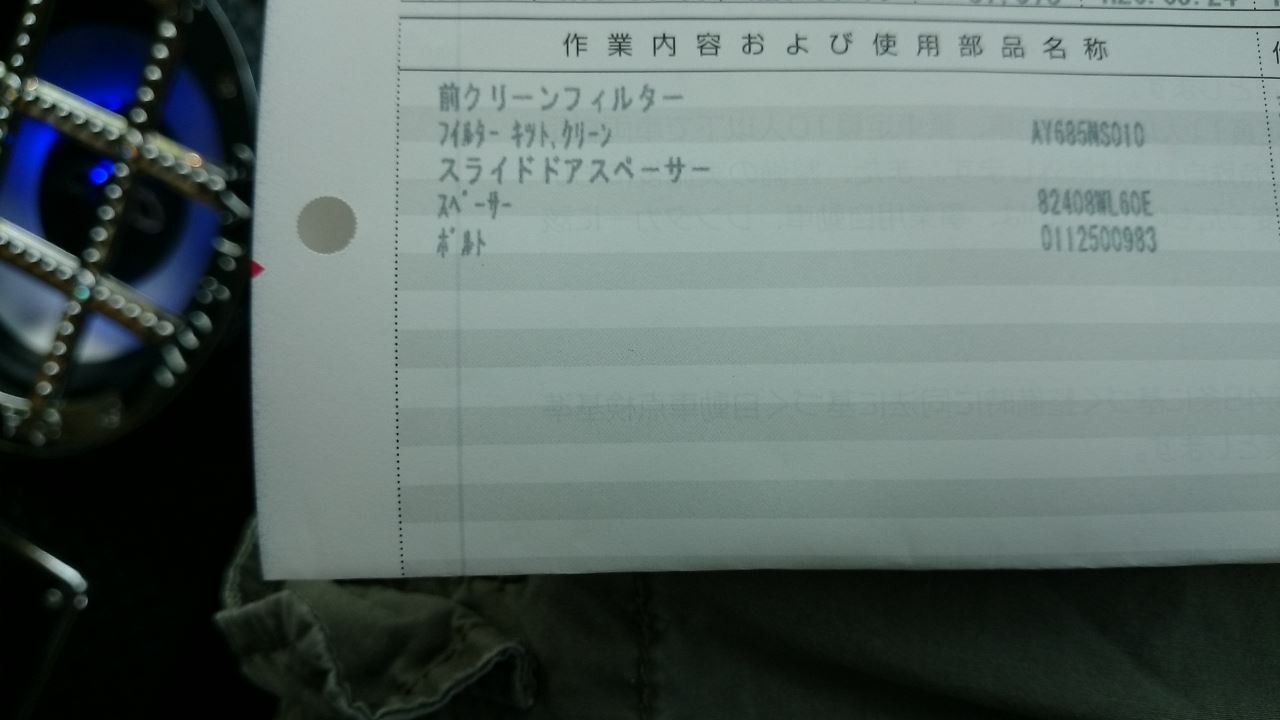 作業内容および使用部品名称
前クリーンフィルター
ﾌｲﾙﾀｰ ｷﾂﾄ,ｸﾘｰﾝ AY685NS010
スライドドアスペーサー
ｽﾍﾟｰｻｰ 82408WL60E
ﾎﾞﾙﾄ 0112500983